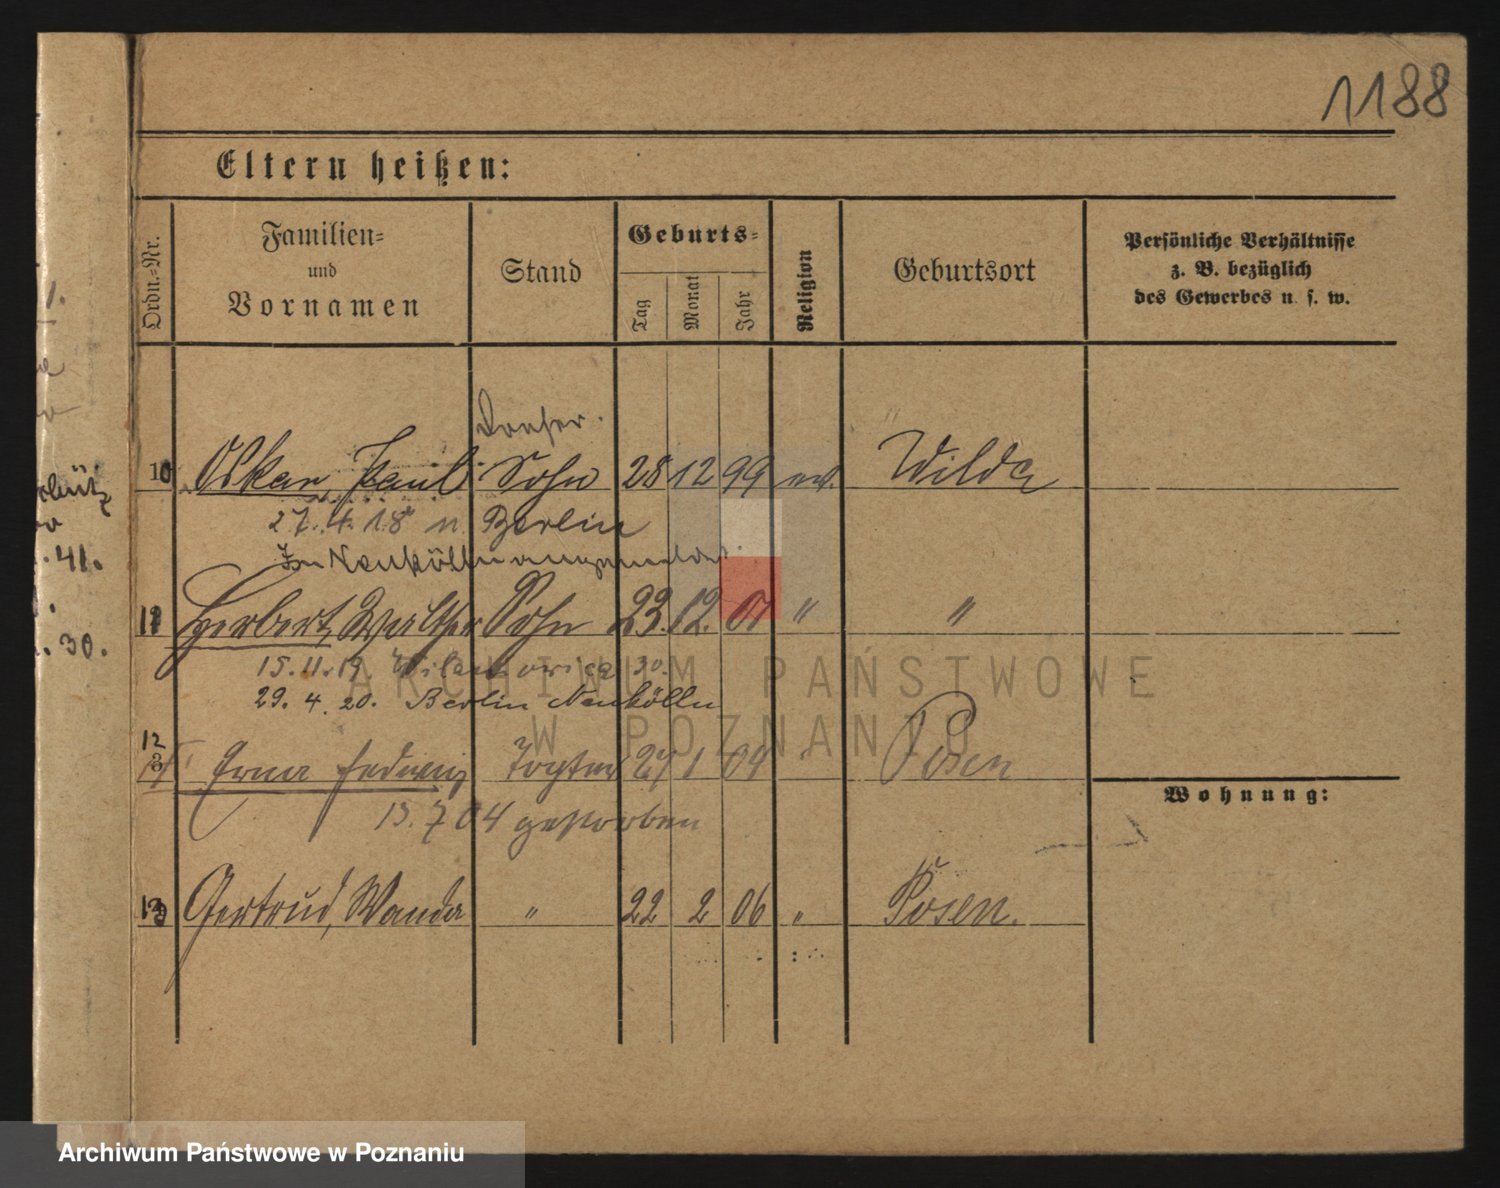 1188
Eltern heißen:
Ordn.-Nr.
Familien-
und
Vornamen
Stand
Geburts-
Tag
Monat
Jahr
Religion
Geburtsort
Persönliche Verhältnisse
z. B. bezüglich
des Gewerbes u. s. w.
10 Oskar, Paul Sohn 28 12 99 ev. Wilda
27. 4. 18 n. Berlin
In Neukölln angemeldet.
11 Herbert, Walther Sohn 23. 12. 01 " "
15. 11. 19 30.
29. 4. 20. Berlin Neukölln
12 Erna Hedwig Tochter 27 1 04 " Posen
13. 7 04 gestorben
Wohnung:
13 Gertrud, Wanda " 22 2 06 " Posen.
41.
30.
ARCHIWUM PAŃSTWOWE
W POZNANIU
Archiwum Państwowe w Poznaniu